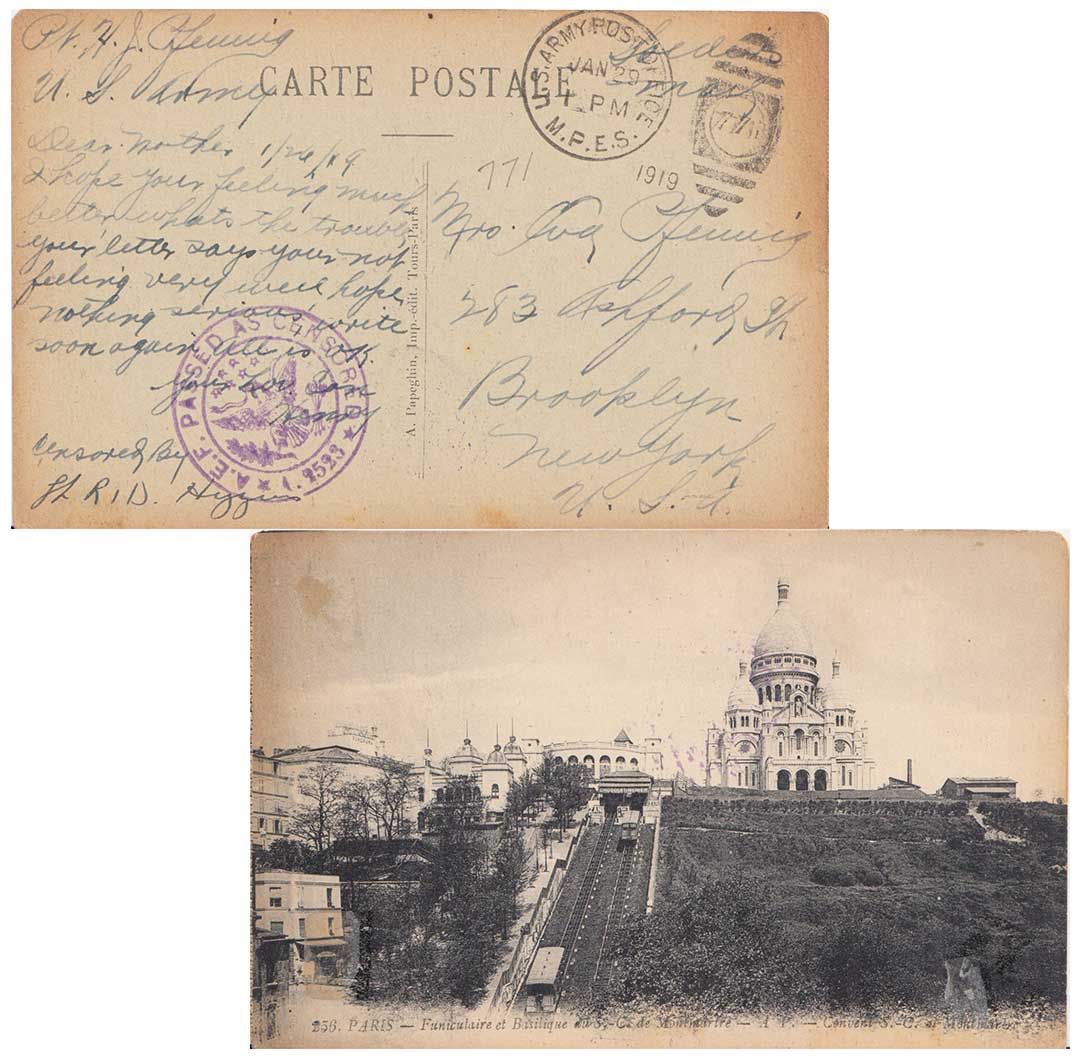 Pv. H. J. Pfennig
U. S. Army
CARTE POSTALE
Soldiers
Mail
U.S. ARMY POST OFFICE
JAN 29
PM
M.P.E.S.
1919
771
Dear Mother 1/26/19
I hope your feeling much
better whats the trouble
your letter says your not
feeling very well hope
nothing serious, write
soon again All is OK.
Your Lov. Son
Henry
Censored By
Lt R. D. Higgins
A.E.F. PASSED AS CENSORED
2523
A. Papeghin, Imp.-édit. Tours-Paris
Mrs. Eva Pfennig
283 Ashford St.
Brooklyn
New York
U. S. A.
256. PARIS — Funiculaire et Basilique du S.-C. de Montmartre — A. P. — Convent S.-C. of Montmartre